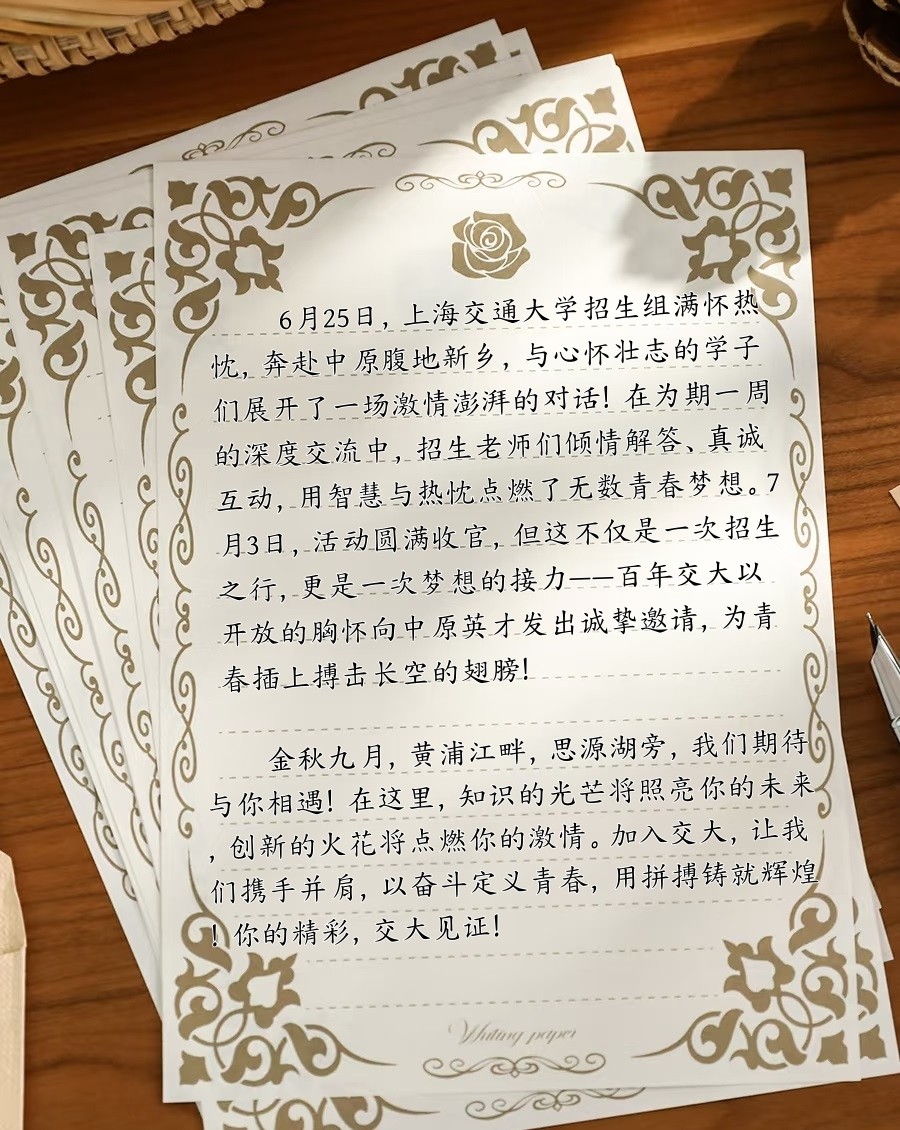 6月25日，上海交通大学招生组满怀热
忱，奔赴中原腹地新乡，与心怀壮志的学子
们展开了一场激情澎湃的对话！在为期一周
的深度交流中，招生老师们倾情解答、真诚
互动，用智慧与热忱点燃了无数青春梦想。7
月3日，活动圆满收官，但这不仅是一次招生
之行，更是一次梦想的接力——百年交大以
开放的胸怀向中原英才发出诚挚邀请，为青
春插上搏击长空的翅膀！
金秋九月，黄浦江畔，思源湖旁，我们期待
与你相遇！在这里，知识的光芒将照亮你的未来
，创新的火花将点燃你的激情。加入交大，让我
们携手并肩，以奋斗定义青春，用拼搏铸就辉煌
！你的精彩，交大见证！
Whiting paper